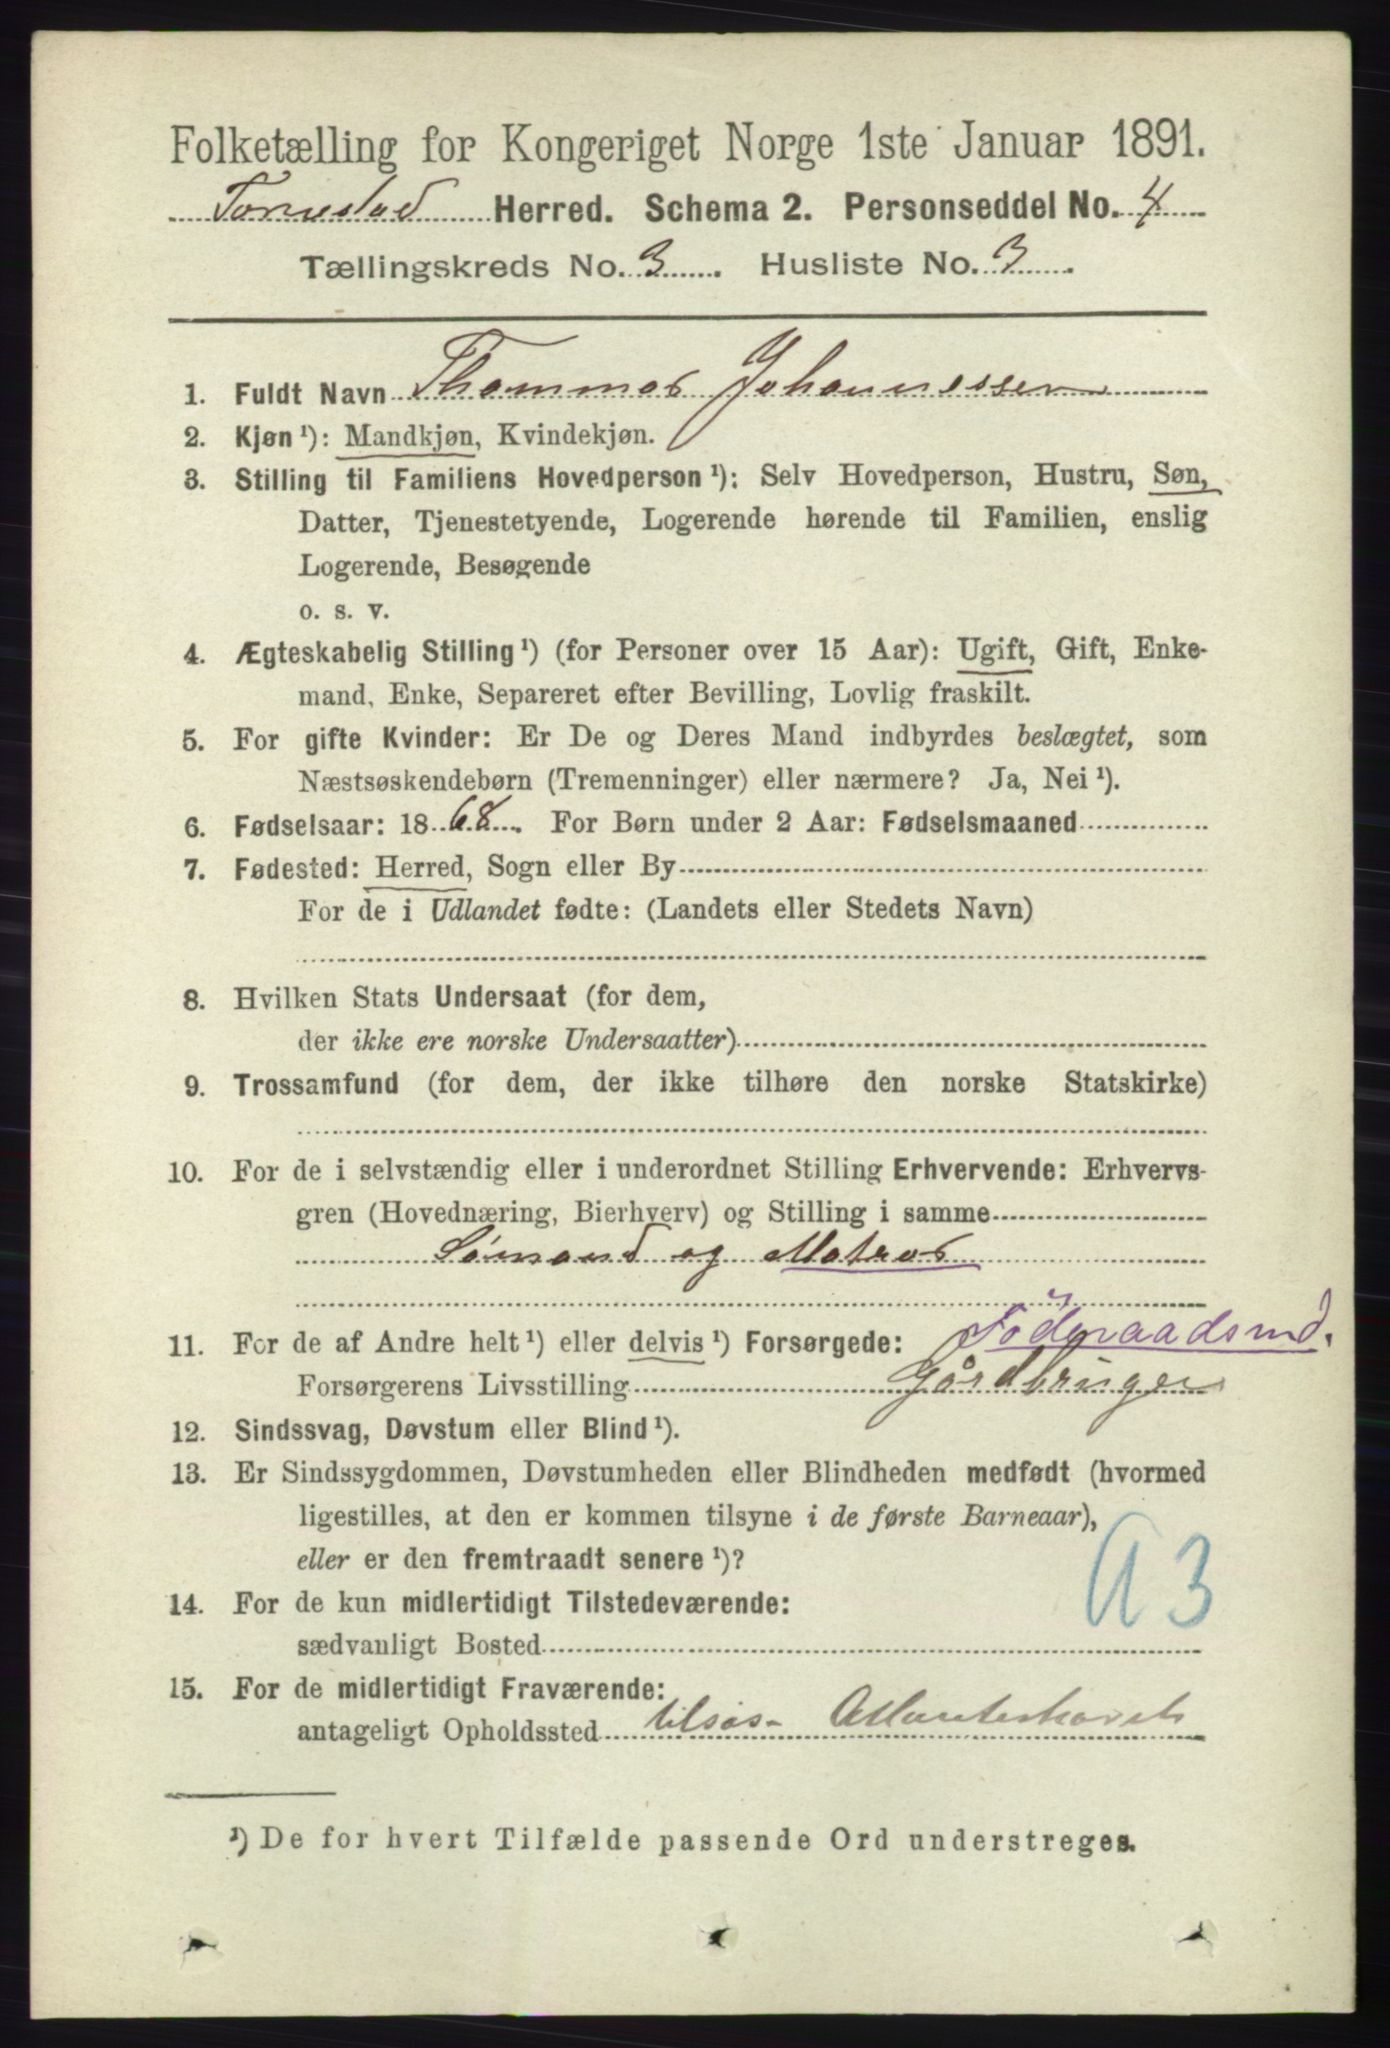 Folketælling for Kongeriget Norge 1ste Januar 1891.
Torvestad Herred. Schema 2. Personseddel No. 4
Tællingskreds No. 3 Husliste No. 3
1. Fuldt Navn Thommas Johannessen
2. Kjøn ¹): Mandkjøn, Kvindekjøn.
3. Stilling til Familiens Hovedperson ¹): Selv Hovedperson, Hustru, Søn,
Datter, Tjenestetyende, Logerende hørende til Familien, enslig
Logerende, Besøgende
o. s. v.
4. Ægteskabelig Stilling ¹) (for Personer over 15 Aar): Ugift, Gift, Enke-
mand, Enke, Separeret efter Bevilling, Lovlig fraskilt.
5. For gifte Kvinder: Er De og Deres Mand indbyrdes beslægtet, som
Næstsøskendebørn (Tremenninger) eller nærmere? Ja, Nei ¹).
6. Fødselsaar: 1868. For Børn under 2 Aar: Fødselsmaaned
7. Fødested: Herred, Sogn eller By
For de i Udlandet fødte: (Landets eller Stedets Navn)
8. Hvilken Stats Undersaat (for dem,
der ikke ere norske Undersaatter)
9. Trossamfund (for dem, der ikke tilhøre den norske Statskirke)
10. For de i selvstændig eller i underordnet Stilling Erhvervende: Erhvervs-
gren (Hovednæring, Bierhverv) og Stilling i samme
Sømand og Matros
11. For de af Andre helt ¹) eller delvis ¹) Forsørgede: Föderaadsmd.
Forsørgerens Livsstilling Gårdbruger
12. Sindssvag, Døvstum eller Blind ¹).
13. Er Sindssygdommen, Døvstumheden eller Blindheden medfødt (hvormed
ligestilles, at den er kommen tilsyne i de første Barneaar),
eller er den fremtraadt senere ¹)?
A3
14. For de kun midlertidigt Tilstedeværende:
sædvanligt Bosted
15. For de midlertidigt Fraværende:
antageligt Opholdssted tilsøs- Atlanterhavet
¹) De for hvert Tilfælde passende Ord understreges.